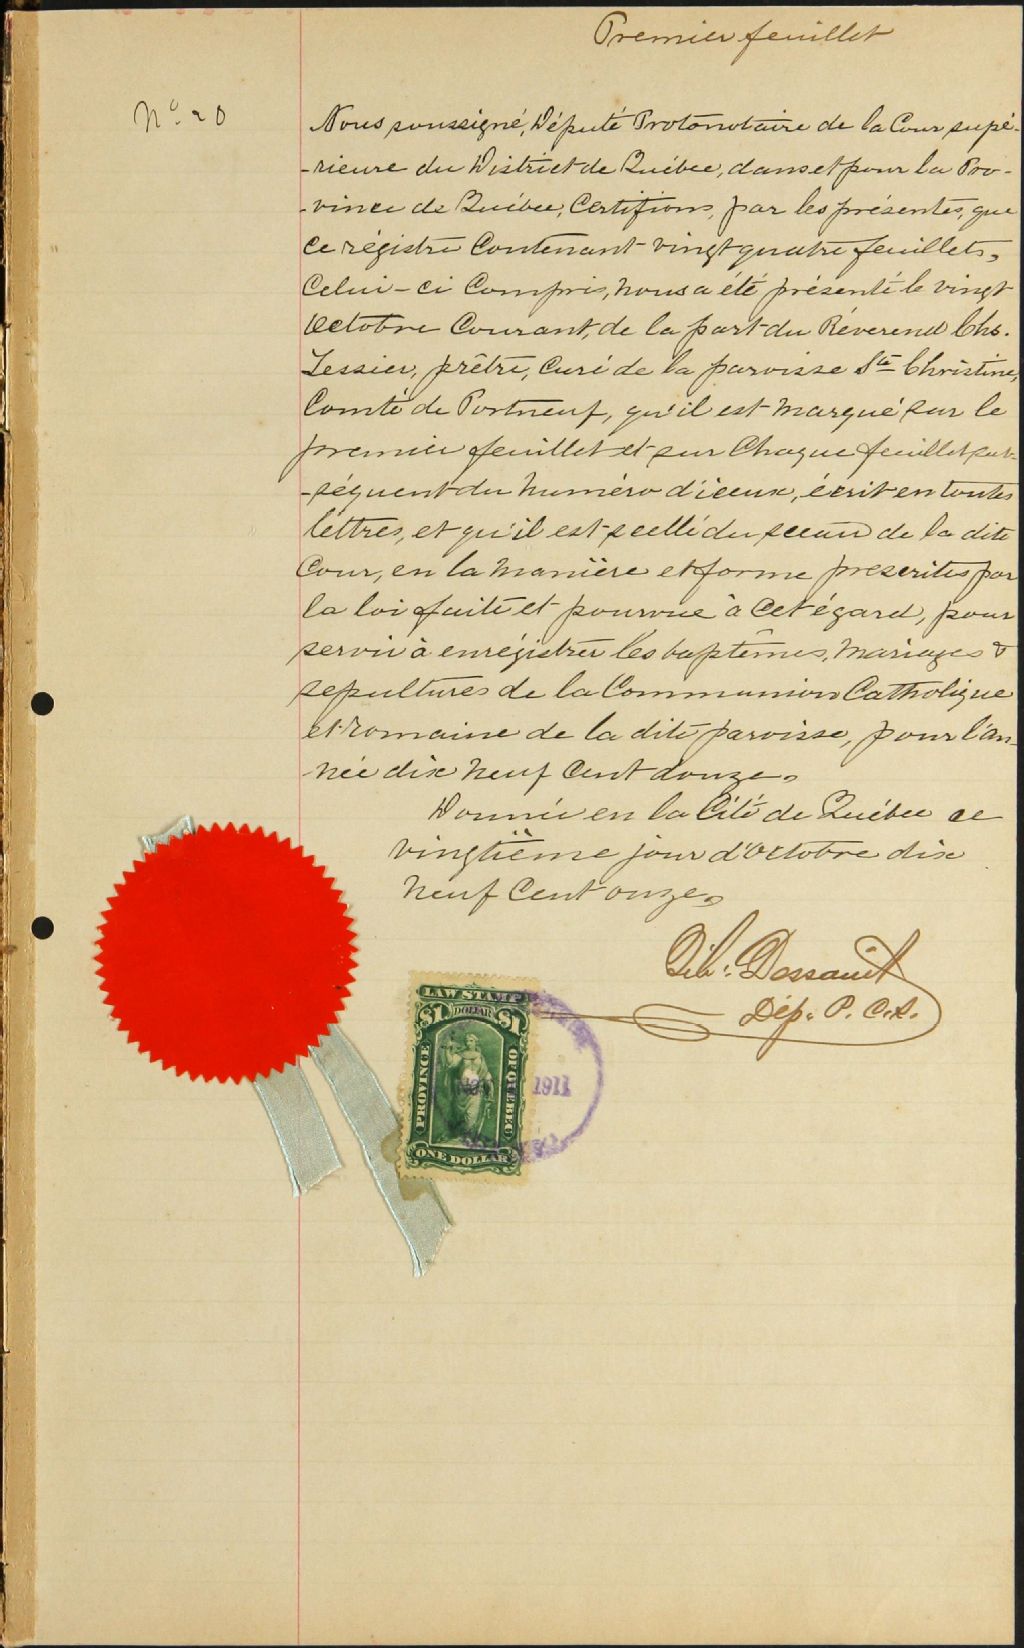 Premier feuillet
No. 20
Nous soussigné, Député Protonotaire de la Cour supé-
-rieure du District de Québec, dans et pour la Pro-
-vince de Québec, Certifions, par les présentes, que
ce régistre Contenant vingt quatre feuillets,
Celui-ci Compris, nous a été présenté le vingt
Octobre Courant, de la part du Réverend Chs.
Tessier, prêtre, Curé de la paroisse Ste Christine,
Comté de Portneuf, qu'il est marqué sur le
premier feuillet et sur Chaque feuillet sub-
-séquent du numéro d'iceux, écrit en toutes
lettres, et qu'il est scellé du sceau de la dite
Cour, en la manière et forme prescrites par
la loi faite et pourvue à cet égard, pour
servir à enrégistrer les baptêmes, mariages &
sepultures de la Communion Catholique
et romaine de la dite paroisse, pour l'an-
née dix neuf Cent douze.
Donnée en la Cité de Québec ce
vingtième jour d'Octobre dix
neuf Cent onze.
Dessault
Dép. P. C. S.
LAW STAMP
$1 DOLLAR $1
PROVINCE OF QUEBEC
1911
ONE DOLLAR